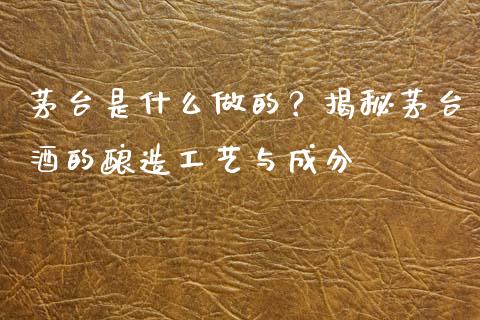 茅台是什么做的？揭秘茅台
酒的酿造工艺与成分